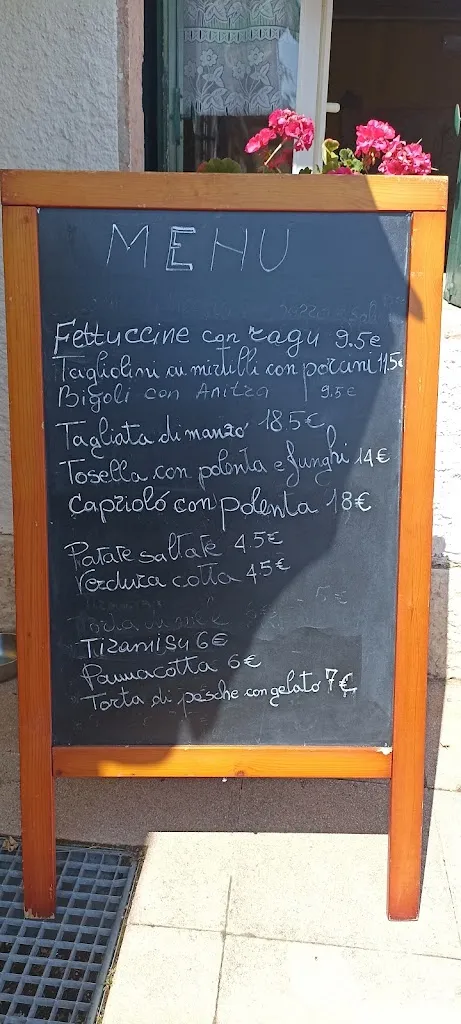 MENU
Fettuccine con ragu 9.5€
Tagliolini ai mirtilli con porcini 11,5€
Bigoli con Anitra 9.5€
Tagliata di manzo 18.5€
Tosella con polenta e funghi 14€
Capriolo con polenta 18€
Patate saltate 4.5€
Verdura cotta 4.5€
Tiramisu 6€
Pannacotta 6€
Torta di pesche con gelato 7€